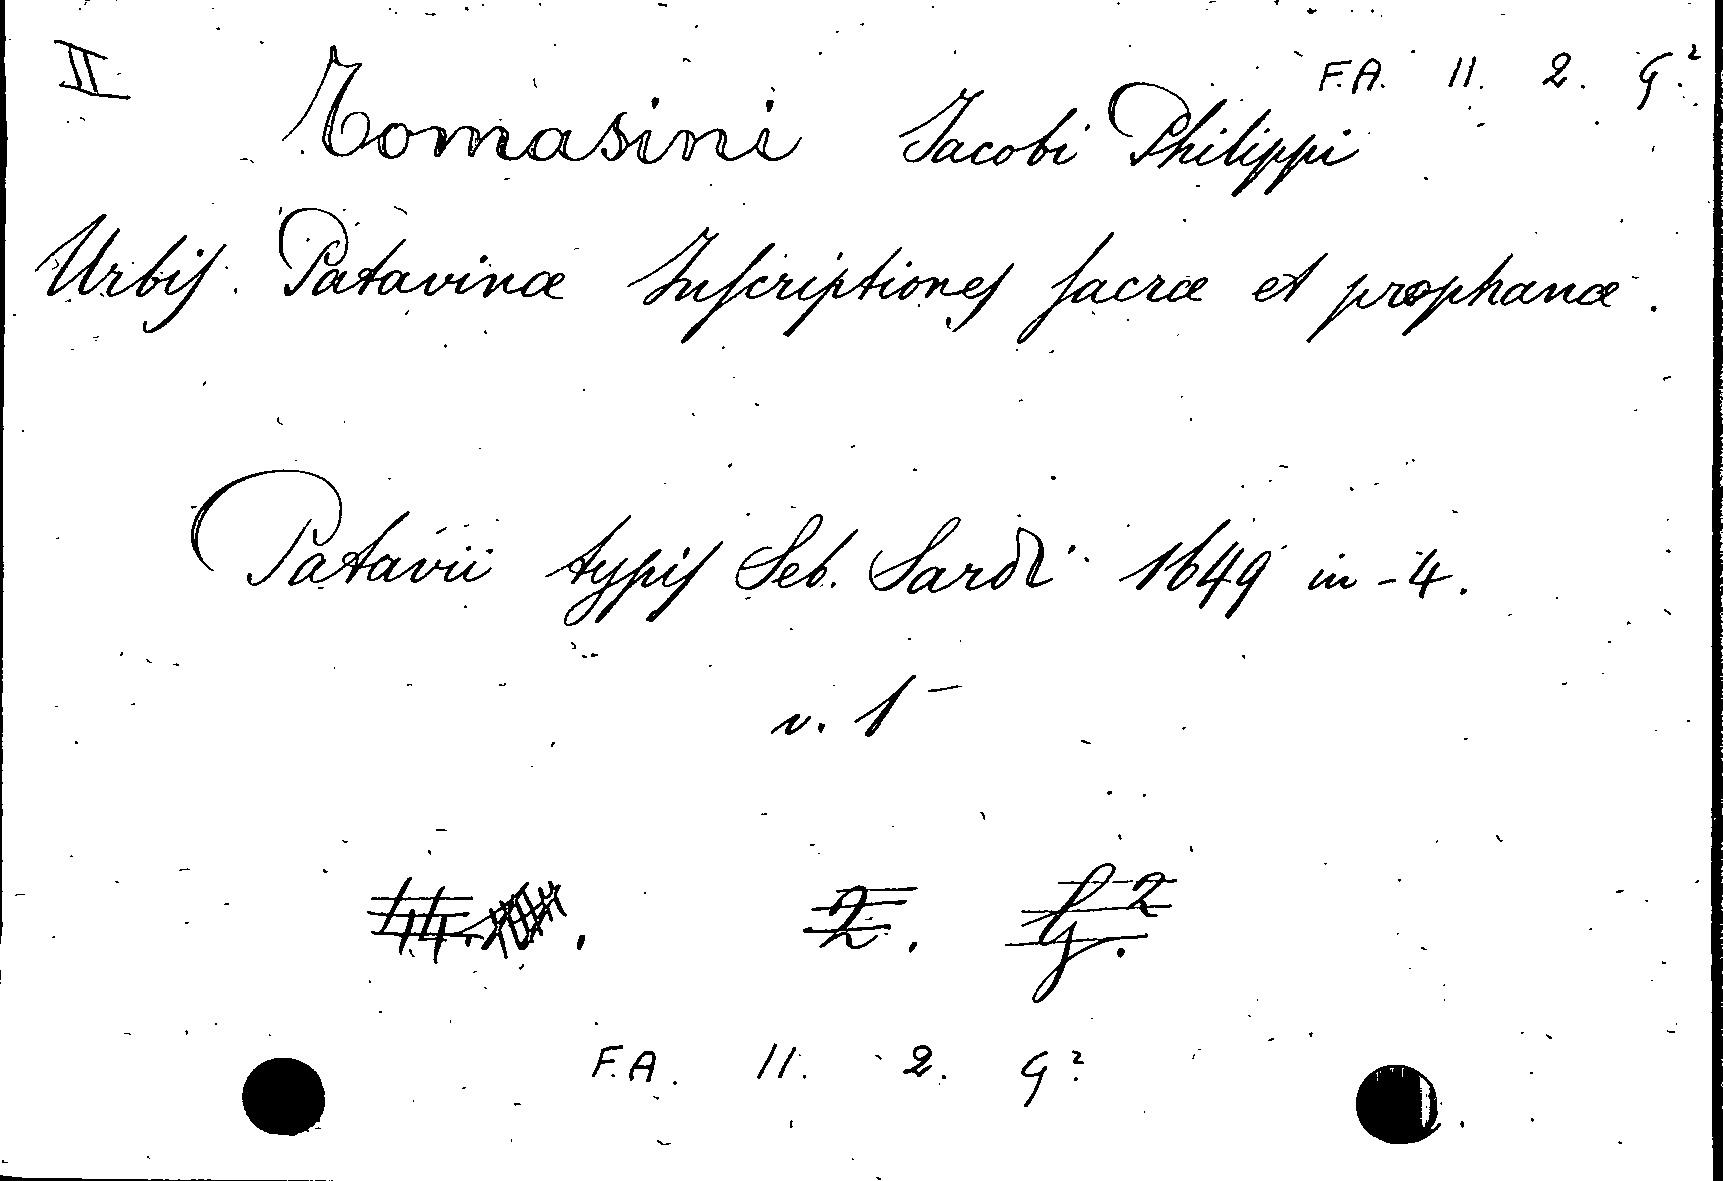 II F.A. 11. 2. G.²
Tomasini Jacobi Philippi
Urbis Patavinæ Inscriptiones sacræ et prophanæ.
Patavii typis Seb. Sardi 1649 in-4.
v. 1
2. G.²
F.A. 11. 2. G.²